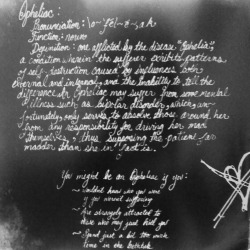 Opheliac:
Pronunciation: \o-fēl-ē-ˌak
Function: noun
Definition: one afflicted by the disease "Ophelia",
a condition wherein the sufferer exhibits patterns
of self-destruction caused by influences both
external and internal, and the inability to tell the
difference. An Opheliac may suffer from some mental
illness such as bipolar disorder, which un-
fortunately only serves to absolve those around her
from any responsibility for driving her mad
themselves, thus supposing the patient far
madder than she in fact is.
You might be an Opheliac if you:
~ Couldn't hear me you were
if you weren't suffering
~ Are strangely attracted to
those who may just kill you
~ Spend just a bit too much
time in the bathtub